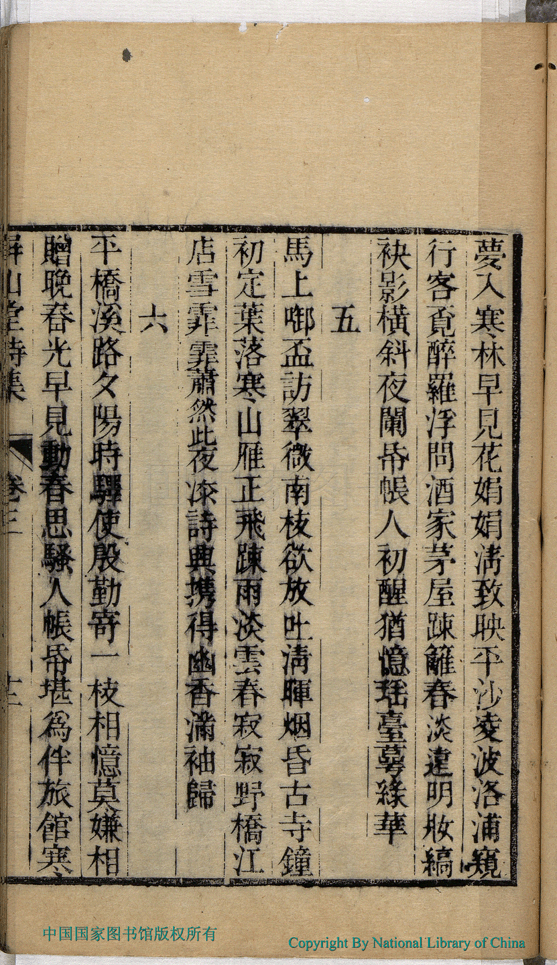 夢入寒林早見花娟娟淸致映平沙凌波洛浦窺
行客覔醉羅浮問酒家茅屋踈籬春淡遠明妝縞
袂影橫斜夜闌帋帳人初醒猶憶瑶臺萼綠華
五
馬上啣盃訪翠微南枝欲放吐淸暉烟昏古寺鐘
初定葉落寒山雁正飛踈雨淡雲春寂寂野橋江
店雪霏霏蕭然此夜添詩興携得幽香滿袖歸
六
平橋溪路夕陽時驛使殷勤寄一枝相憶莫嫌相
贈晚春光早見動春思騷人帳帋堪爲伴旅館寒
屏山堂詩集 卷三 十三
中国国家图书馆版权所有
Copyright By National Library of China